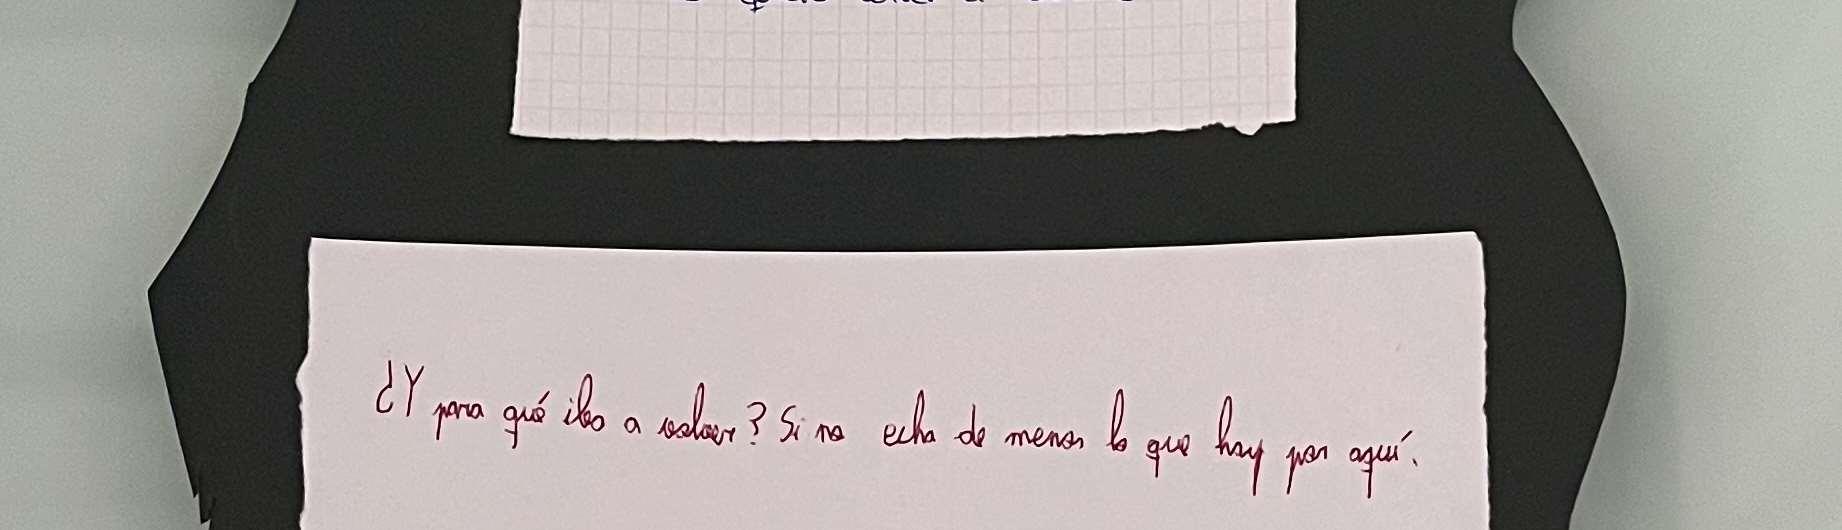 ¿Y para qué iba a volver? Si no echa de menos lo que hay por aquí.